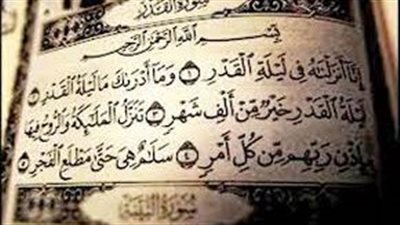 سُورَةُ القَدْرِ
بِسْمِ اللَّهِ الرَّحْمَٰنِ الرَّحِيمِ
إِنَّا أَنزَلْنَاهُ فِي لَيْلَةِ الْقَدْرِ ١ وَمَا أَدْرَىٰكَ مَا لَيْلَةُ الْقَدْرِ ٢
لَيْلَةُ الْقَدْرِ خَيْرٌ مِّنْ أَلْفِ شَهْرٍ ٣ تَنَزَّلُ الْمَلَائِكَةُ وَالرُّوحُ فِيهَا
بِإِذْنِ رَبِّهِم مِّن كُلِّ أَمْرٍ ٤ سَلَامٌ هِيَ حَتَّىٰ مَطْلَعِ الْفَجْرِ ٥
سُورَةُ البَيِّنَةِ